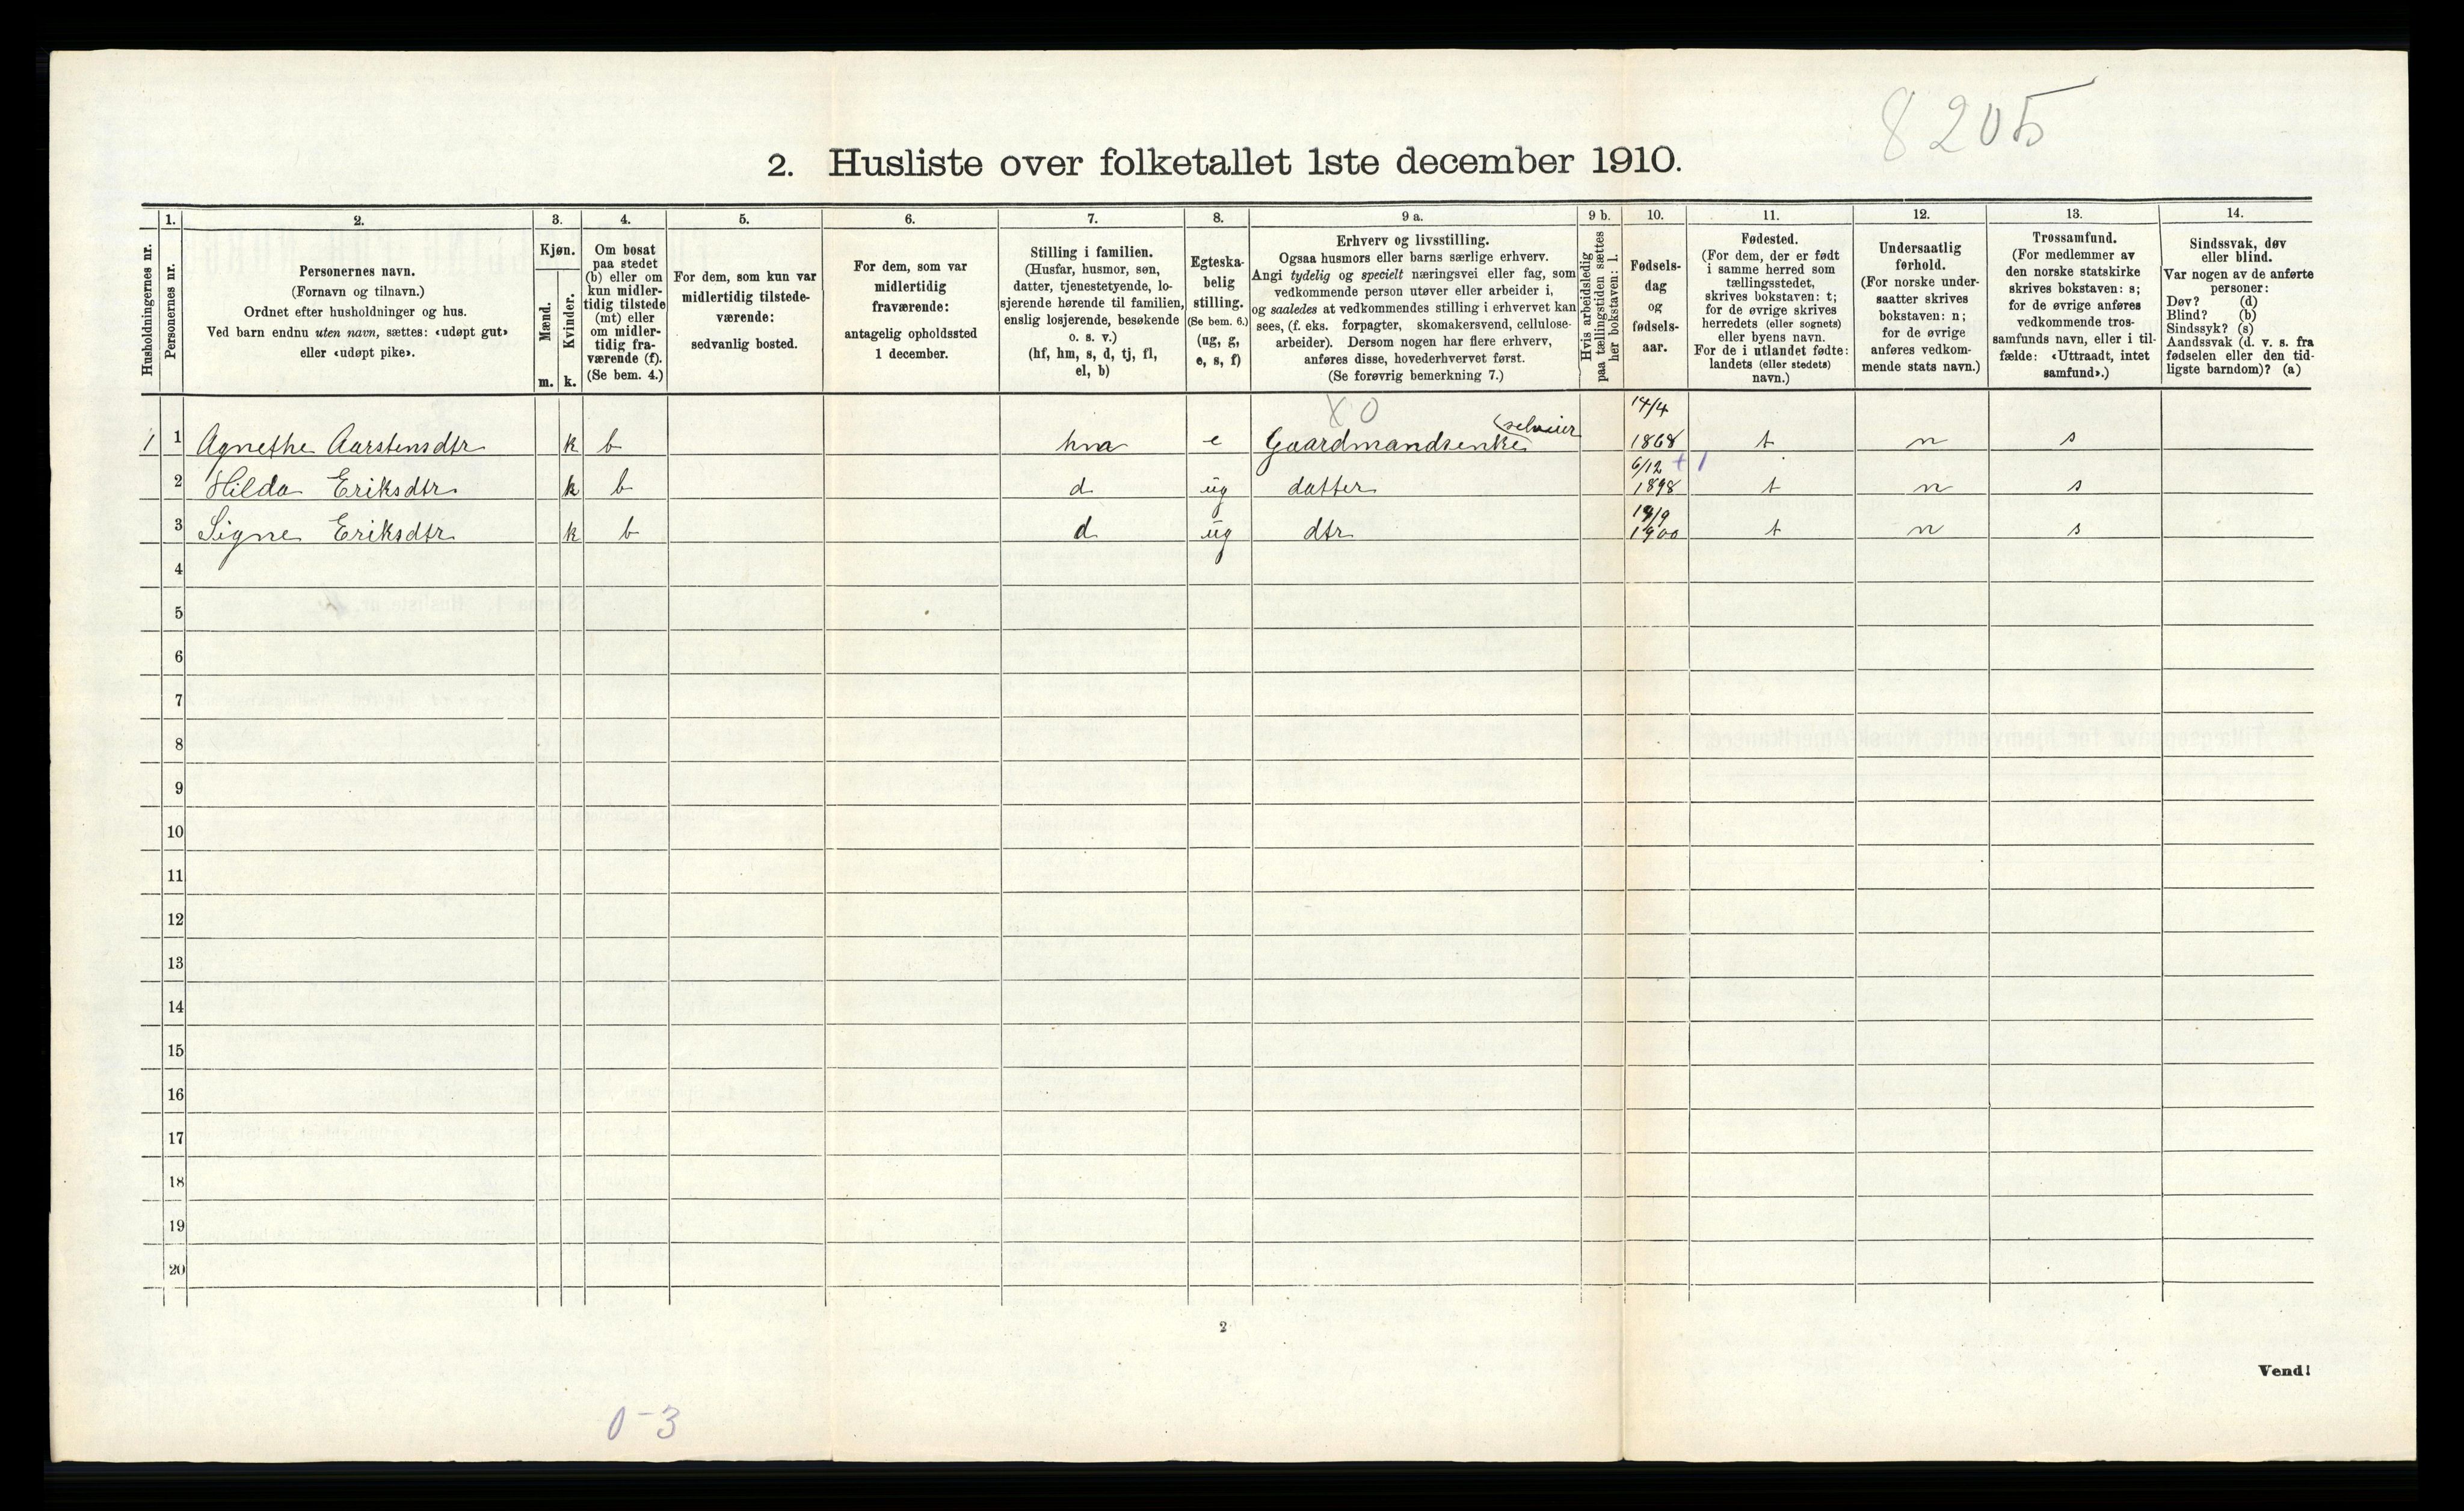 8205
2. Husliste over folketallet 1ste december 1910.
Husholdningernes nr.
1.
Personernes nr.
2.
Personernes navn.
(Fornavn og tilnavn.)
Ordnet efter husholdninger og hus.
Ved barn endnu uten navn, sættes: «udøpt gut»
eller «udøpt pike».
3.
Kjøn.
Mænd.
m.
Kvinder.
k.
4.
Om bosat
paa stedet
(b) eller om
kun midler-
tidig tilstede
(mt) eller
om midler-
tidig fra-
værende (f).
(Se bem. 4.)
5.
For dem, som kun var
midlertidig tilstede-
værende:
sedvanlig bosted.
6.
For dem, som var
midlertidig
fraværende:
antagelig opholdssted
1 december.
7.
Stilling i familien.
(Husfar, husmor, søn,
datter, tjenestetyende, lo-
sjerende hørende til familien,
enslig losjerende, besøkende
o. s. v.)
(hf, hm, s, d, tj, fl,
el, b)
8.
Egteska-
belig
stilling.
(Se bem. 6.)
(ug, g,
e, s, f)
9 a.
Erhverv og livsstilling.
Ogsaa husmors eller barns særlige erhverv.
Angi tydelig og specielt næringsvei eller fag, som
vedkommende person utøver eller arbeider i,
og saaledes at vedkommendes stilling i erhvervet kan
sees, (f. eks. forpagter, skomakersvend, cellulose-
arbeider). Dersom nogen har flere erhverv,
anføres disse, hovederhvervet først.
(Se forøvrig bemerkning 7.)
9 b.
Hvis arbeidsledig
paa tællingstiden sættes
her bokstaven: l.
10.
Fødsels-
dag
og
fødsels-
aar.
11.
Fødested.
(For dem, der er født
i samme herred som
tællingsstedet,
skrives bokstaven: t;
for de øvrige skrives
herredets (eller sognets)
eller byens navn.
For de i utlandet fødte:
landets (eller stedets)
navn.)
12.
Undersaatlig
forhold.
(For norske under-
saatter skrives
bokstaven: n;
for de øvrige
anføres vedkom-
mende stats navn.)
13.
Trossamfund.
(For medlemmer av
den norske statskirke
skrives bokstaven: s;
for de øvrige anføres
vedkommende tros-
samfunds navn, eller i til-
fælde: «Uttraadt, intet
samfund».)
14.
Sindssvak, døv
eller blind.
Var nogen av de anførte
personer:
Døv? (d)
Blind? (b)
Sindssyk? (s)
Aandssvak (d. v. s. fra
fødselen eller den tid-
ligste barndom)? (a)
X 0
selveier 14/4
1 1 Agnethe Aarstensdtr k b hm e Gaardmandsenke 1868 t n s
6/12 + 1
2 Hilda Eriksdtr k b d ug datter 1898 t n s
19/9
3 Signe Eriksdtr k b d ug dtr 1900 t n s
4
5
6
7
8
9
10
11
12
13
14
15
16
17
18
19
20
2
Vend!
0-3